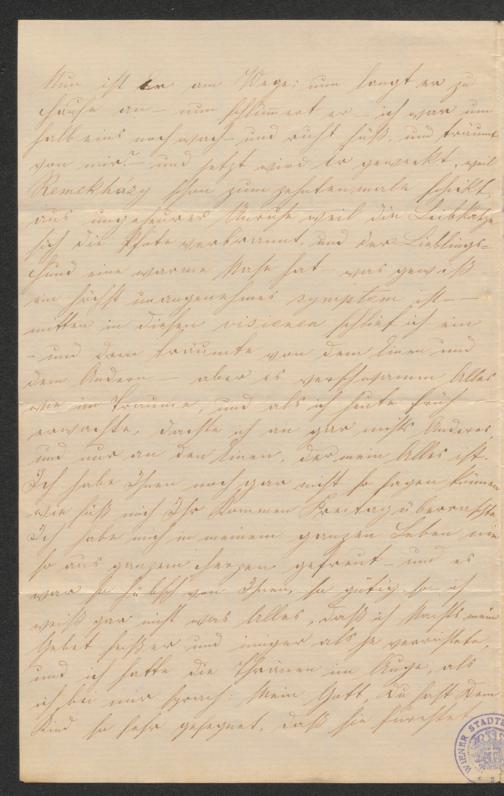 Nun ist er am Wege; nun langt er zu
Hause an – nun schlummert er – ich war um
halb eins noch wach – und ruht süß, und träumt
von mir – und jetzt wird er geweckt, weil
Remekházy schon zum zehntenmale schickt,
aus ungeheurer Unruhe weil die Leibkatze
sich die Pfote verbrannt, und der Lieblings-
hund eine warme Nase hat – was gewiß
ein höchst unangenehmes symptom ist –
mitten in diesen visionen schlief ich ein
– und dann träumte von dem Einen und
dem Andern – aber es verschwamm Alles
wie im Traume, und als ich heute früh
erwachte, dachte ich an gar nichts Anderes,
und nur an den Einen, der mein Alles ist.
Ich habe Ihnen noch gar nicht so sagen können
wie süß mich Ihr Kommen Freitag überraschte
Ich habe mich in meinem ganzen Leben nie
so aus ganzem Herzen gefreut – und es
war so hübsch von Ihnen, so gütig, so – ich
weiß gar nicht was Alles, daß ich Nachts mein
Gebet heißer und inniger als je verrichtete,
und ich hatte die Thränen im Auge, als
ich bei mir sprach: Mein Gott, Du hast Dein
Kind so sehr gesegnet, daß sie fürchtet
WIENER STADT